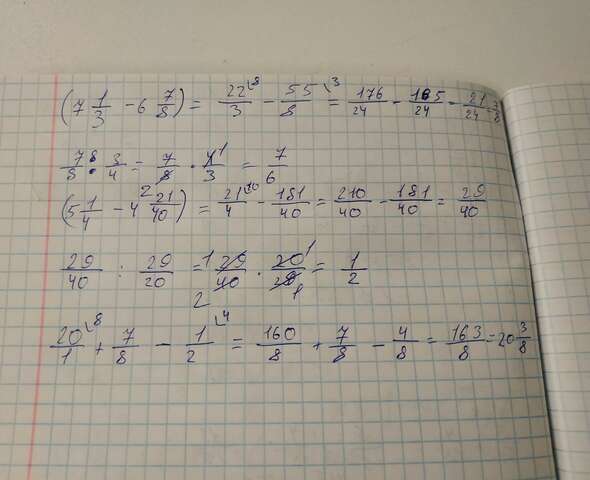 (7 1/3 - 6 7/8) = 22/3 ⁸ - 55/8 ³ = 176/24 - 165/24 - 21/24 3/8
7/8 : 3/4 = 7/8 · 4/3 ¹ = 7/6
(5 1/4 - 4 21/40) = 21/4 ¹⁰ - 181/40 = 210/40 - 181/40 = 29/40
29/40 : 29/20 = 29/40 · 20/29 = 1/2
20/1 ⁸ + 7/8 - 1/2 ⁴ = 160/8 + 7/8 - 4/8 = 163/8 = 20 3/8